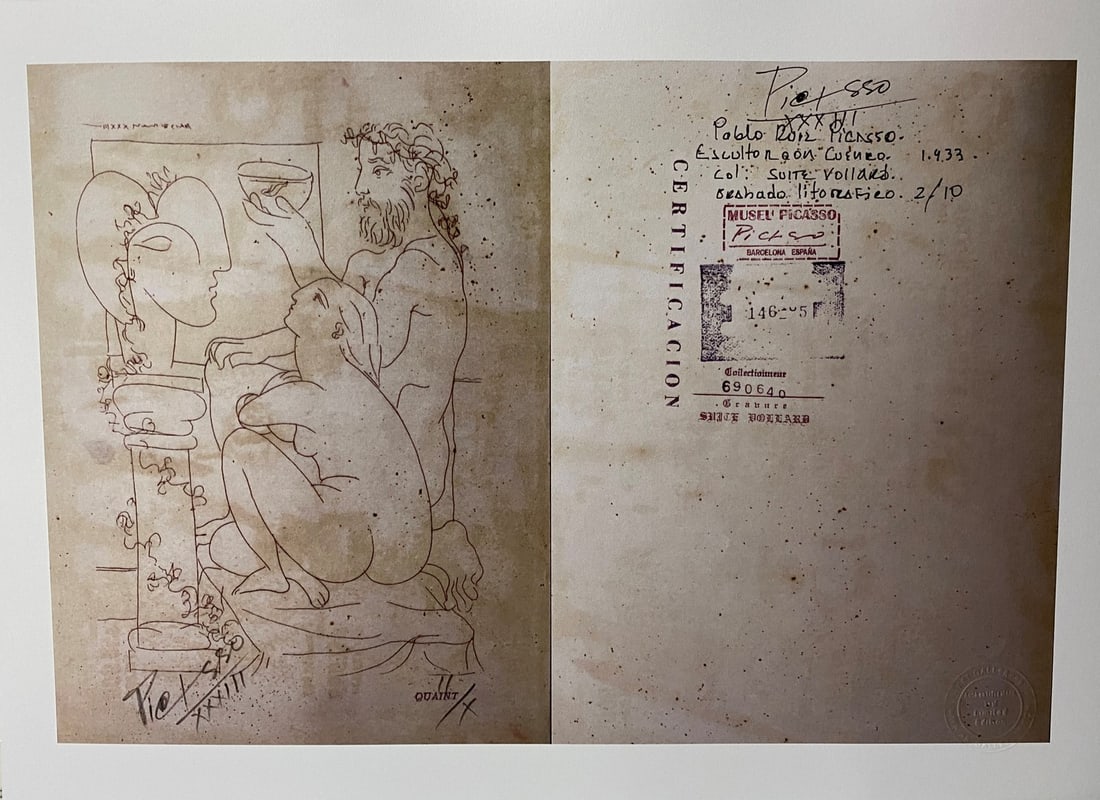 Picasso
XXXIII
QUAINT
II/X
Picasso
XXXIII
Pablo Ruiz Picasso.
Escultor con Cuenco. 1.933.
Col: SUITE Vollard.
Grabado litografico. 2/10
CERTIFICACION
MUSEU PICASSO
Picasso
BARCELONA ESPAÑA
146
Collectionneur
690640
Gravure
SUITE VOLLARD